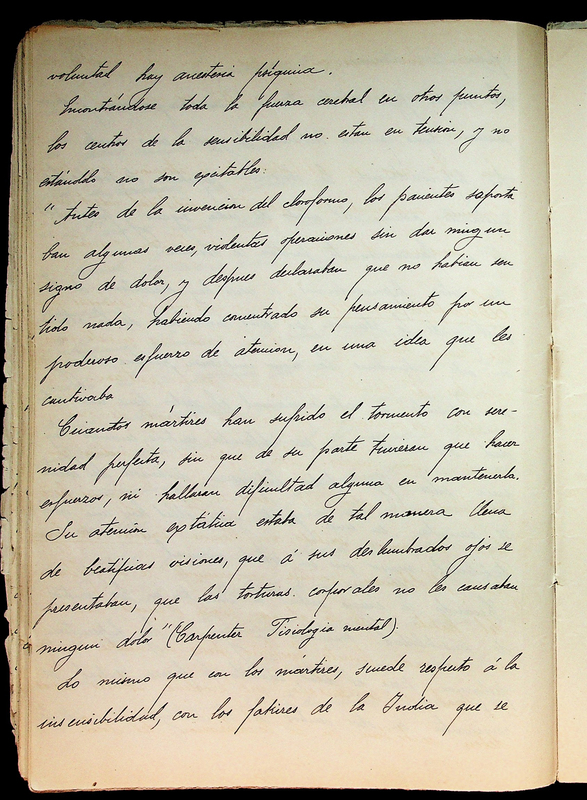 voluntad hay anestesia psíquica.
Encontrándose toda la fuerza cerebral en otros puntos,
los centros de la sensibilidad no estan en tension, y no
estándolo no son excitables:
"Antes de la invencion del cloroformo, los pacientes soporta
ban algunas veces, violentas operaciones sin dar ningun
signo de dolor, y despues declaraban que no habian sen
tido nada, habiendo concentrado su pensamiento por un
poderoso esfuerzo de atencion, en una idea que les
cautivaba
Cuantos mártires han sufrido el tormento con sere-
nidad perfecta, sin que de su parte tuvieran que hacer
esfuerzos, ni hallaran dificultad alguna en mantenerla.
Su atencion extática estaba de tal manera llena
de beatíficas visiones, que á sus deslumbrados ojos se
presentaban, que las torturas corporales no les causaban
ningun dolor" (Carpenter Fisiologia mental).
Lo mismo que con los mártires, sucede respecto á la
insensibilidad, con los fakires de la India que se